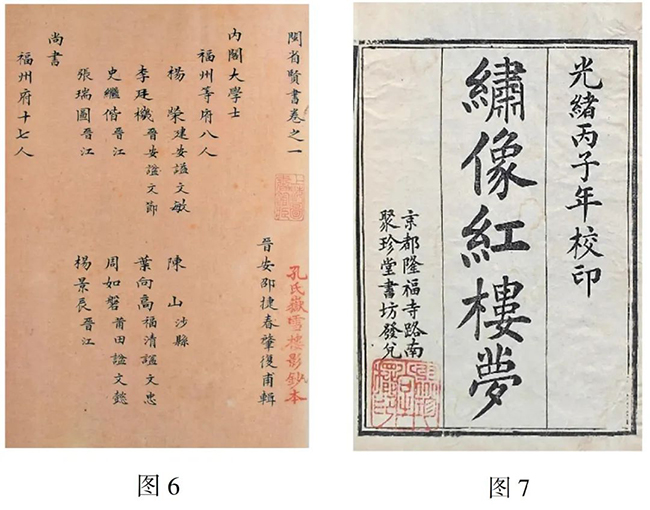 閩省賢書卷之一
孔氏嶽雪樓影鈔本
晉安邵捷春肇復甫輯
內閣大學士
福州等府八人
楊榮 建安謚文敏 陳山 沙縣
李廷機 晉安謚文節 葉向高 福清謚文忠
史繼偕 晉江 周如磐 莆田謚文懿
張瑞圖 晉江 楊景辰 晉江
尚書
福州府十七人
图6
光緒丙子年校印
繡像紅樓夢
京都隆福寺路南
聚珍堂書坊發兌
图7